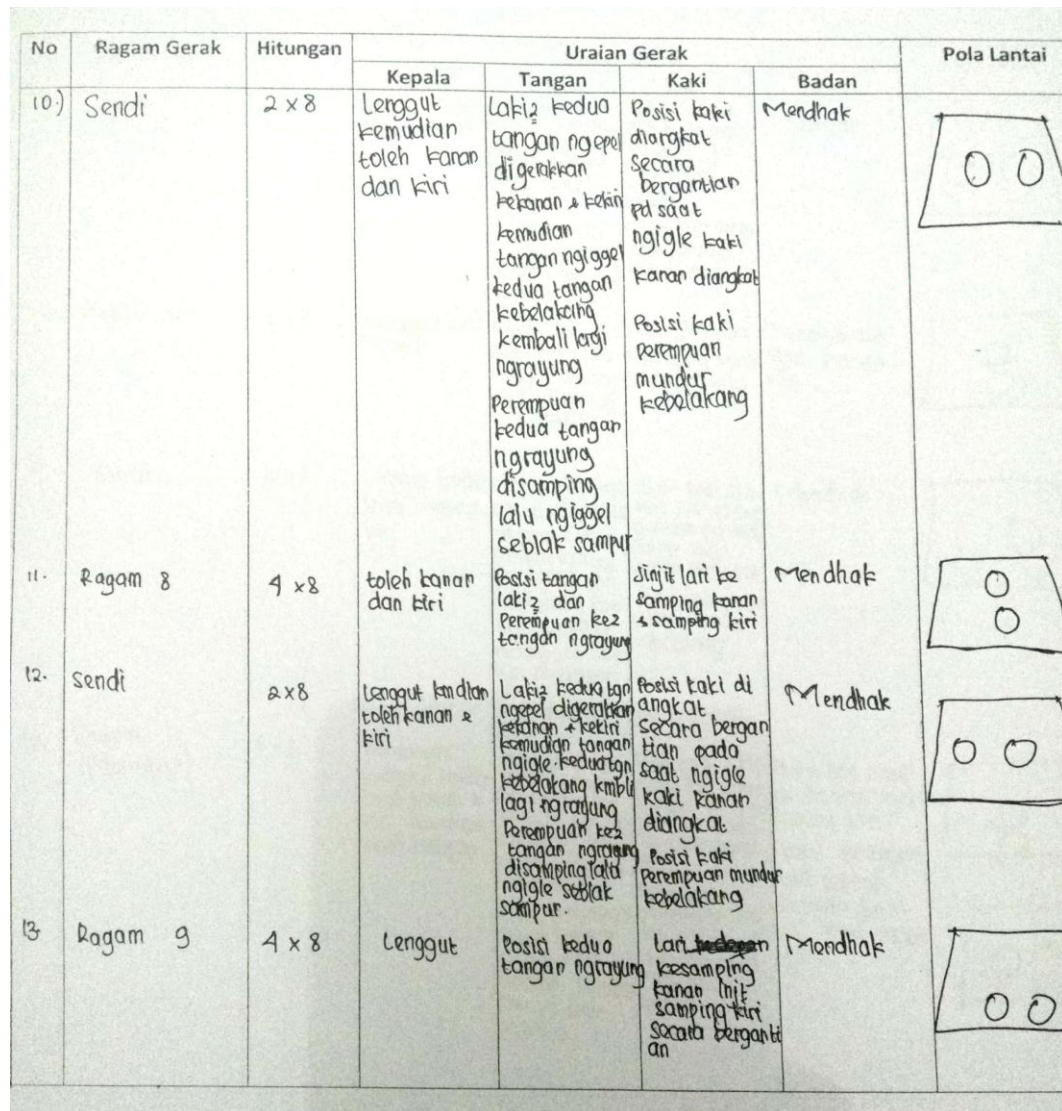 No Ragam Gerak Hitungan Uraian Gerak Pola Lantai
Kepala Tangan Kaki Badan
10.) Sendi 2 x 8
Lenggut
kemudian
toleh kanan
dan kiri
Laki2 kedua
tangan ngepel
digerakkan
kekanan & kekiri
kemudian
tangan ngiggel
kedua tangan
kebelakang
kembali lagi
ngrayung
Perempuan
kedua tangan
ngrayung
disamping
lalu ngiggel
seblak sampur
Posisi kaki
diangkat
Secara
bergantian
pd saat
ngigle kaki
kanan diangkat
Posisi kaki
perempuan
mundur
kebelakang
Mendhak
11. Ragam 8 4 x 8
toleh kanan
dan kiri
Posisi tangan
laki2 dan
Perempuan ke2
tangan ngrayung
Jinjit lari ke
samping kanan
& samping kiri
Mendhak
12. Sendi 2 x 8
Lenggut kmdian
toleh kanan &
kiri
Laki2 kedua tgn
ngepel digerakkan
kekanan & kekiri
kemudian tangan
ngigle kedua tgn
kebelakang kmbli
lagi ngrayung
Perempuan ke2
tangan ngrayung
disamping lalu
ngigle seblak
sampur.
Posisi kaki di
angkat
Secara bergan
tian pada
saat ngigle
kaki kanan
diangkat
Posisi kaki
Perempuan mundur
kebelakang
Mendhak
13 Ragam 9 4 x 8
Lenggut
Posisi kedua
tangan ngrayung
Lari kedepan
kesamping
kanan
samping kiri
secara berganti
an
Mendhak